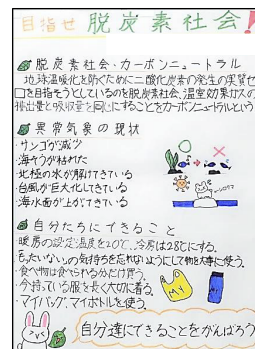 目指せ脱炭素社会!
脱炭素社会・カーボンニュートラル
地球温暖化を防ぐために二酸化炭素の発生の実質ゼ
ロを目指そうとしているのを脱炭素社会、温室効果ガスの
排出量と吸収量を同じにすることをカーボンニュートラルという
異常気象の現状
・サンゴが減少
・海そうが枯れた
・北極の氷が解けてきている
・台風が巨大化してきている
・海水面が上がてきている
自分たちにできること
暖房の設定温度を20℃、冷房は28℃にする。
もったいない。の気持ちを忘れないようにして物を大事に使う。
・食べ物は食べられる分だけ買う。
・今持っている服を長く大切に着る。
・マイバッグ、マイボトルを使う。
MY
自分達にできることをがんばろう